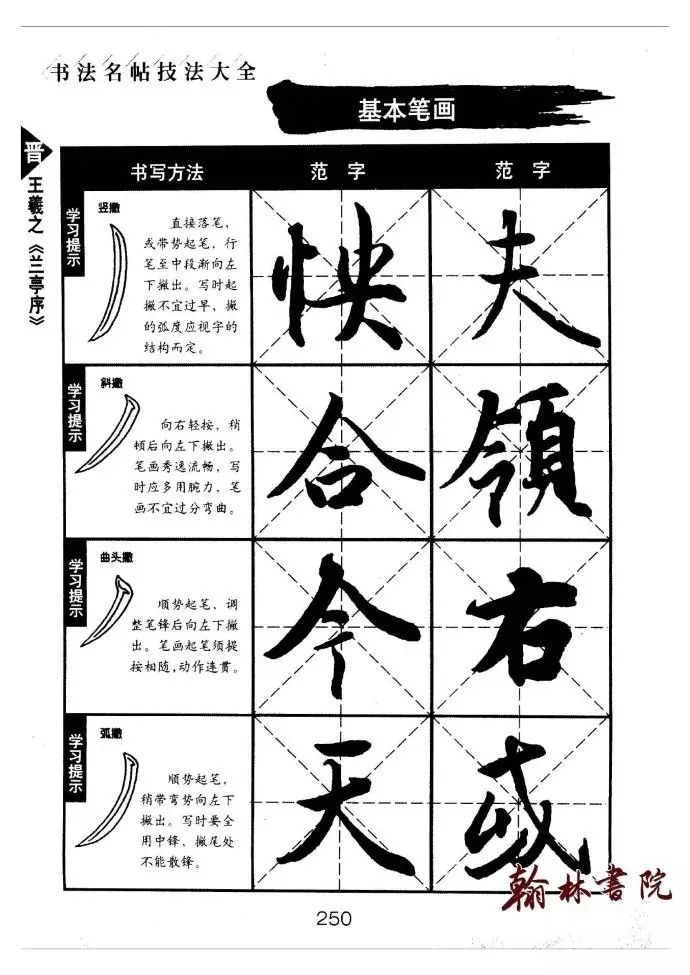 书法名帖技法大全
基本笔画
晋
王羲之《兰亭序》
书写方法
范字
范字
学习提示
竖撇
直接落笔，
或带势起笔，行
笔至中段渐向左
下撇出。写时起
撇不宜过早，撇
的弧度应视字的
结构而定。
怏
夫
学习提示
斜撇
向右轻按，稍
顿后向左下撇出。
笔画秀逸流畅，写
时应多用腕力，笔
画不宜过分弯曲。
合
領
学习提示
曲头撇
顺势起笔，调
整笔锋后向左下撇
出。笔画起笔须提
按相随，动作连贯。
今
右
学习提示
弧撇
顺势起笔，
稍带弯势向左下
撇出。写时要全
用中锋，撇尾处
不能散锋。
天
或
翰林書院
250